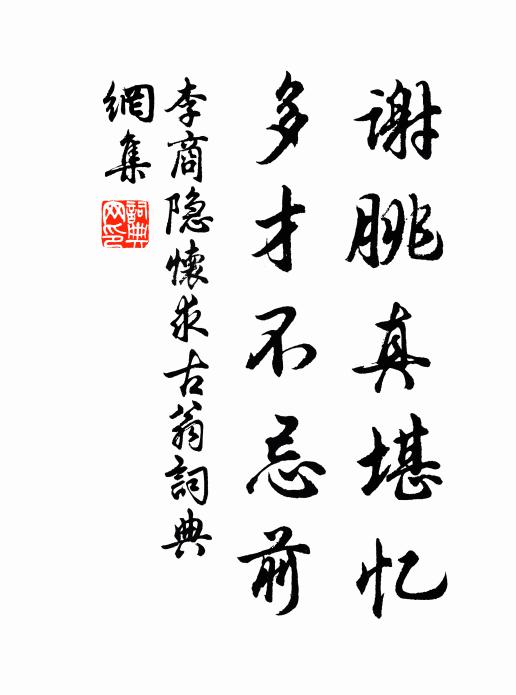 谢朓真堪忆
多才不忌前
李商隐懷求古翁詞典
網集
詞典網印